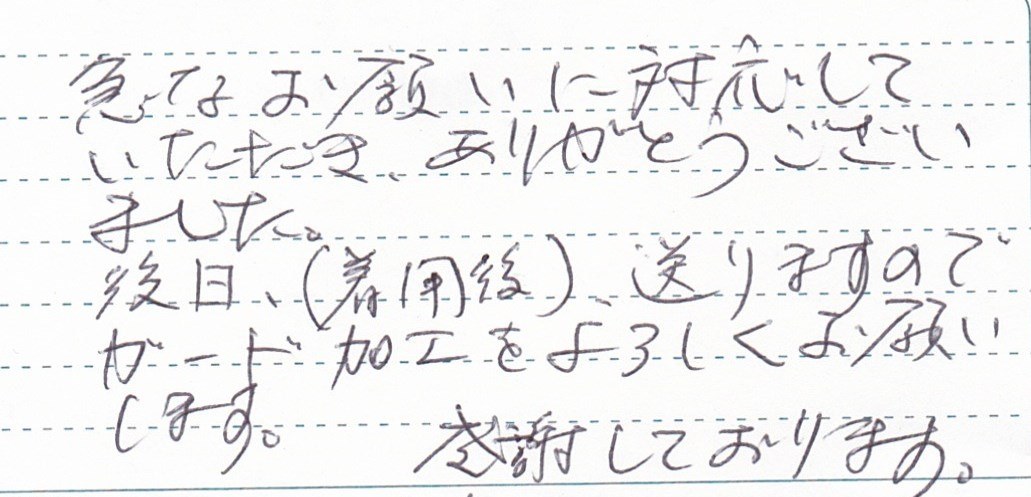 急なお願いに対応して
いただき、ありがとうござい
ました。
後日、(着用後)、送りますので
ガード加工をよろしくお願い
します。
感謝しております。